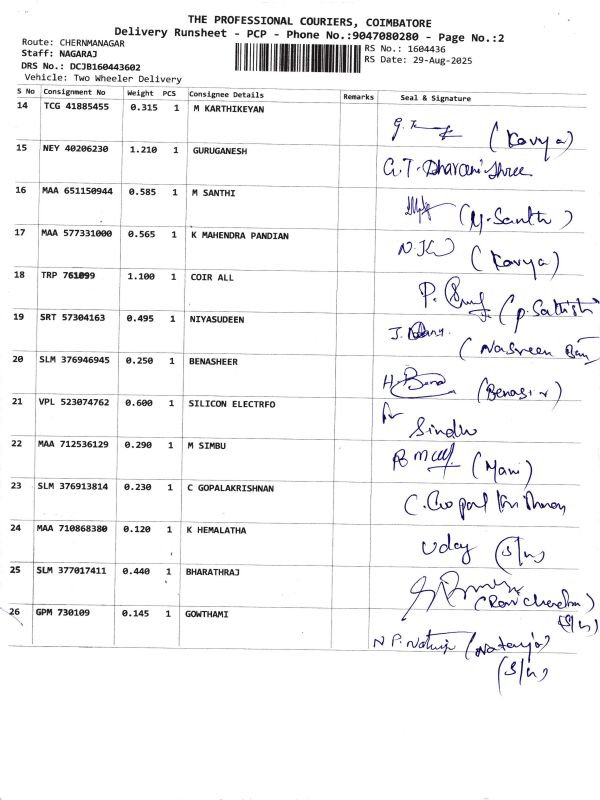 THE PROFESSIONAL COURIERS, COIMBATORE
Delivery Runsheet - PCP - Phone No.:9047080280 - Page No.:2
Route: CHERNMANAGAR
RS No.: 1604436
Staff: NAGARAJ
RS Date: 29-Aug-2025
DRS No.: DCJB160443602
Vehicle: Two Wheeler Delivery
S No Consignment No Weight PCS Consignee Details Remarks Seal & Signature
14 TCG 41885455 0.315 1 M KARTHIKEYAN
(Kavya)
15 NEY 40206230 1.210 1 GURUGANESH
G.T. Dharani Shree
16 MAA 651150944 0.585 1 M SANTHI
(M. Santhi)
17 MAA 577331000 0.565 1 K MAHENDRA PANDIAN
(Kavya)
18 TRP 761099 1.100 1 COIR ALL
(P. Sathish
19 SRT 57304163 0.495 1 NIYASUDEEN
(Nasreen Ban
20 SLM 376946945 0.250 1 BENASHEER
(Benasir)
21 VPL 523074762 0.600 1 SILICON ELECTRFO
Sindhu
22 MAA 712536129 0.290 1 M SIMBU
(Mani)
23 SLM 376913814 0.230 1 C GOPALAKRISHNAN
C. Gopal
24 MAA 710868380 0.120 1 K HEMALATHA
Uday (S/n)
25 SLM 377017411 0.440 1 BHARATHRAJ
(S/n)
26 GPM 730109 0.145 1 GOWTHAMI
(Nataraj)
(S/n)